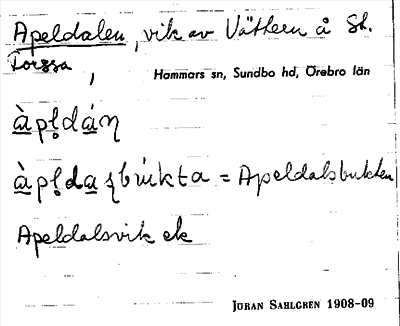 Apeldalen, vik av Vättern å Sk.
Torssa,
Hammars sn, Sundbo hd, Örebro län
àpl̥dán
àpl̥daʂbúkta = Apeldalsbukten
Apeldalsvik ek
JÖRAN SAHLGREN 1908-09